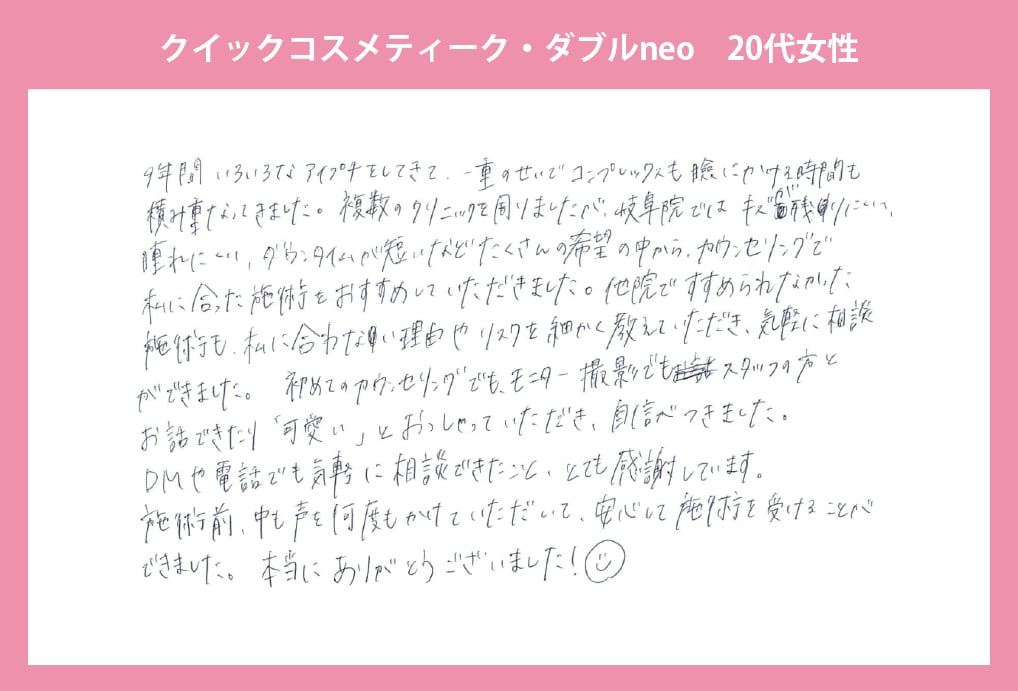 クイックコスメティーク・ダブルneo　20代女性
9年間いろいろなアイプチをしてきて、一重のせいでコンプレックスも瞼にかける時間も
積み重なってきました。複数のクリニックを周りましたが、岐阜院ではキズが残りにくい、
腫れにくい、ダウンタイムが短いなどたくさんの希望の中から、カウンセリングで
私に合った施術をおすすめしていただきました。他院ですすめられなかった
施術も、私に合わない理由やリスクを細かく教えていただき、気軽に相談
ができました。初めてのカウンセリングでも、モニター撮影でもスタッフの方と
お話できたり「可愛い」とおっしゃっていただき、自信がつきました。
DMや電話でも気軽に相談できたこと、とても感謝しています。
施術前、中も声を何度もかけていただいて、安心して施術を受けることが
できました。本当にありがとうございました！